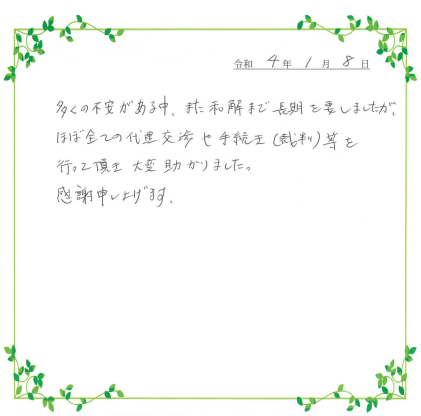 令和 4 年 1 月 8 日
多くの不安がある中、また和解まで長期を要しましたが、
ほぼ全ての代理交渉や手続き(裁判)等を
行って頂き大変助かりました。
感謝申し上げます。